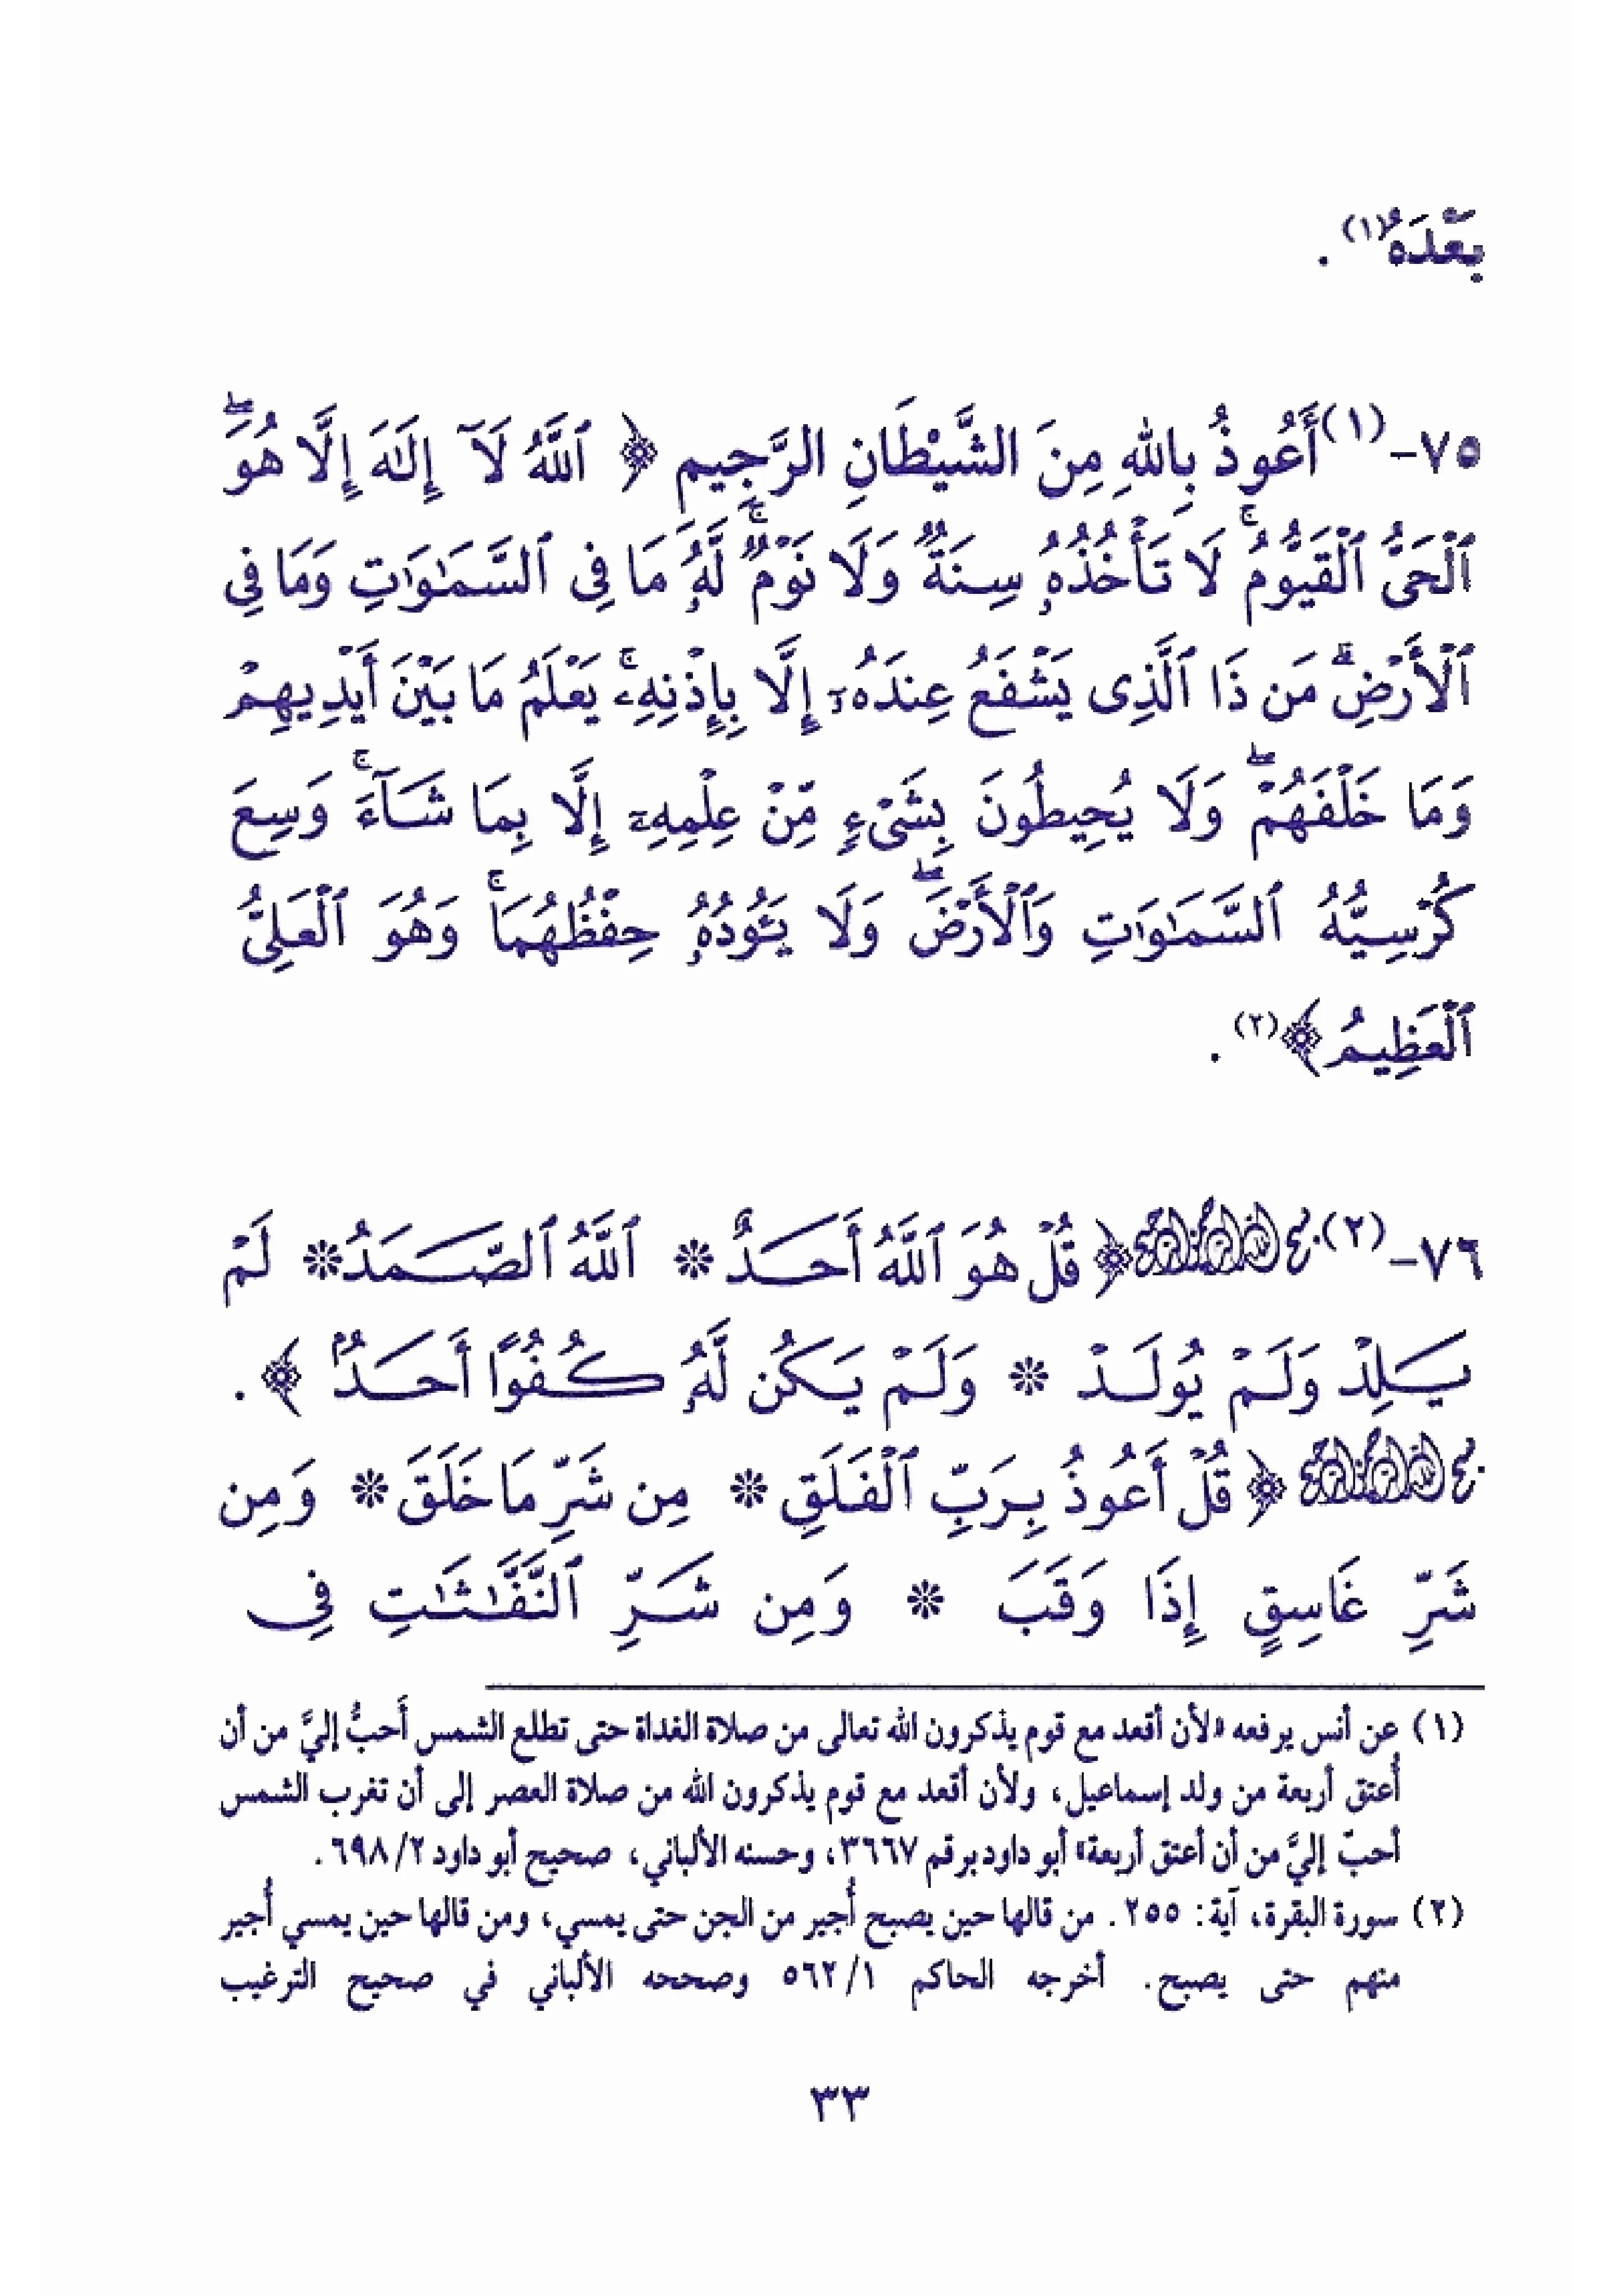 بَعْدَهُ(١) .
٧٥-(١)أَعُوذُ بِاللهِ مِنَ الشَّيْطَانِ الرَّجِيمِ ﴿ ٱللَّهُ لَآ إِلَٰهَ إِلَّا هُوَۖ
ٱلْحَىُّ ٱلْقَيُّومُۚ لَا تَأْخُذُهُۥ سِنَةٌ وَلَا نَوْمٌۚ لَّهُۥ مَا فِى ٱلسَّمَٰوَٰتِ وَمَا فِي
ٱلْأَرْضِۗ مَن ذَا ٱلَّذِى يَشْفَعُ عِندَهُۥٓ إِلَّا بِإِذْنِهِۦۚ يَعْلَمُ مَا بَيْنَ أَيْدِيهِمْ
وَمَا خَلْفَهُمْۖ وَلَا يُحِيطُونَ بِشَىْءٍ مِّنْ عِلْمِهِۦٓ إِلَّا بِمَا شَآءَۚ وَسِعَ
كُرْسِيُّهُ ٱلسَّمَٰوَٰتِ وَٱلْأَرْضَۖ وَلَا يَـُٔودُهُۥ حِفْظُهُمَاۚ وَهُوَ ٱلْعَلِىُّ
ٱلْعَظِيمُ﴾(٢) .
٧٦-(٢) بسم الله الرحمن الرحيم ﴿ قُلْ هُوَ ٱللَّهُ أَحَدٌ * ٱللَّهُ ٱلصَّمَدُ * لَمْ
يَلِدْ وَلَمْ يُولَدْ * وَلَمْ يَكُن لَّهُۥ كُفُوًا أَحَدٌۢ ﴾ .
بسم الله الرحمن الرحيم ﴿ قُلْ أَعُوذُ بِرَبِّ ٱلْفَلَقِ * مِن شَرِّ مَا خَلَقَ * وَمِن
شَرِّ غَاسِقٍ إِذَا وَقَبَ * وَمِن شَرِّ ٱلنَّفَّٰثَٰتِ فِى
(١) عن أنس يرفعه «لأن أقعد مع قوم يذكرون الله تعالى من صلاة الغداة حتى تطلع الشمس أَحبُّ إليَّ من أن
أُعتق أربعة من ولد إسماعيل، ولأن أقعد مع قوم يذكرون الله من صلاة العصر إلى أن تغرب الشمس
أحبّ إليَّ من أن أعتق أربعة» أبو داود برقم ٣٦٦٧، وحسنه الألباني، صحيح أبو داود ٢/ ٦٩٨ .
(٢) سورة البقرة، آية: ٢٥٥ . من قالها حين يصبح أُجير من الجن حتى يمسي، ومن قالها حين يمسي أُجير
منهم حتى يصبح. أخرجه الحاكم ١/ ٥٦٢ وصححه الألباني في صحيح الترغيب
٣٣